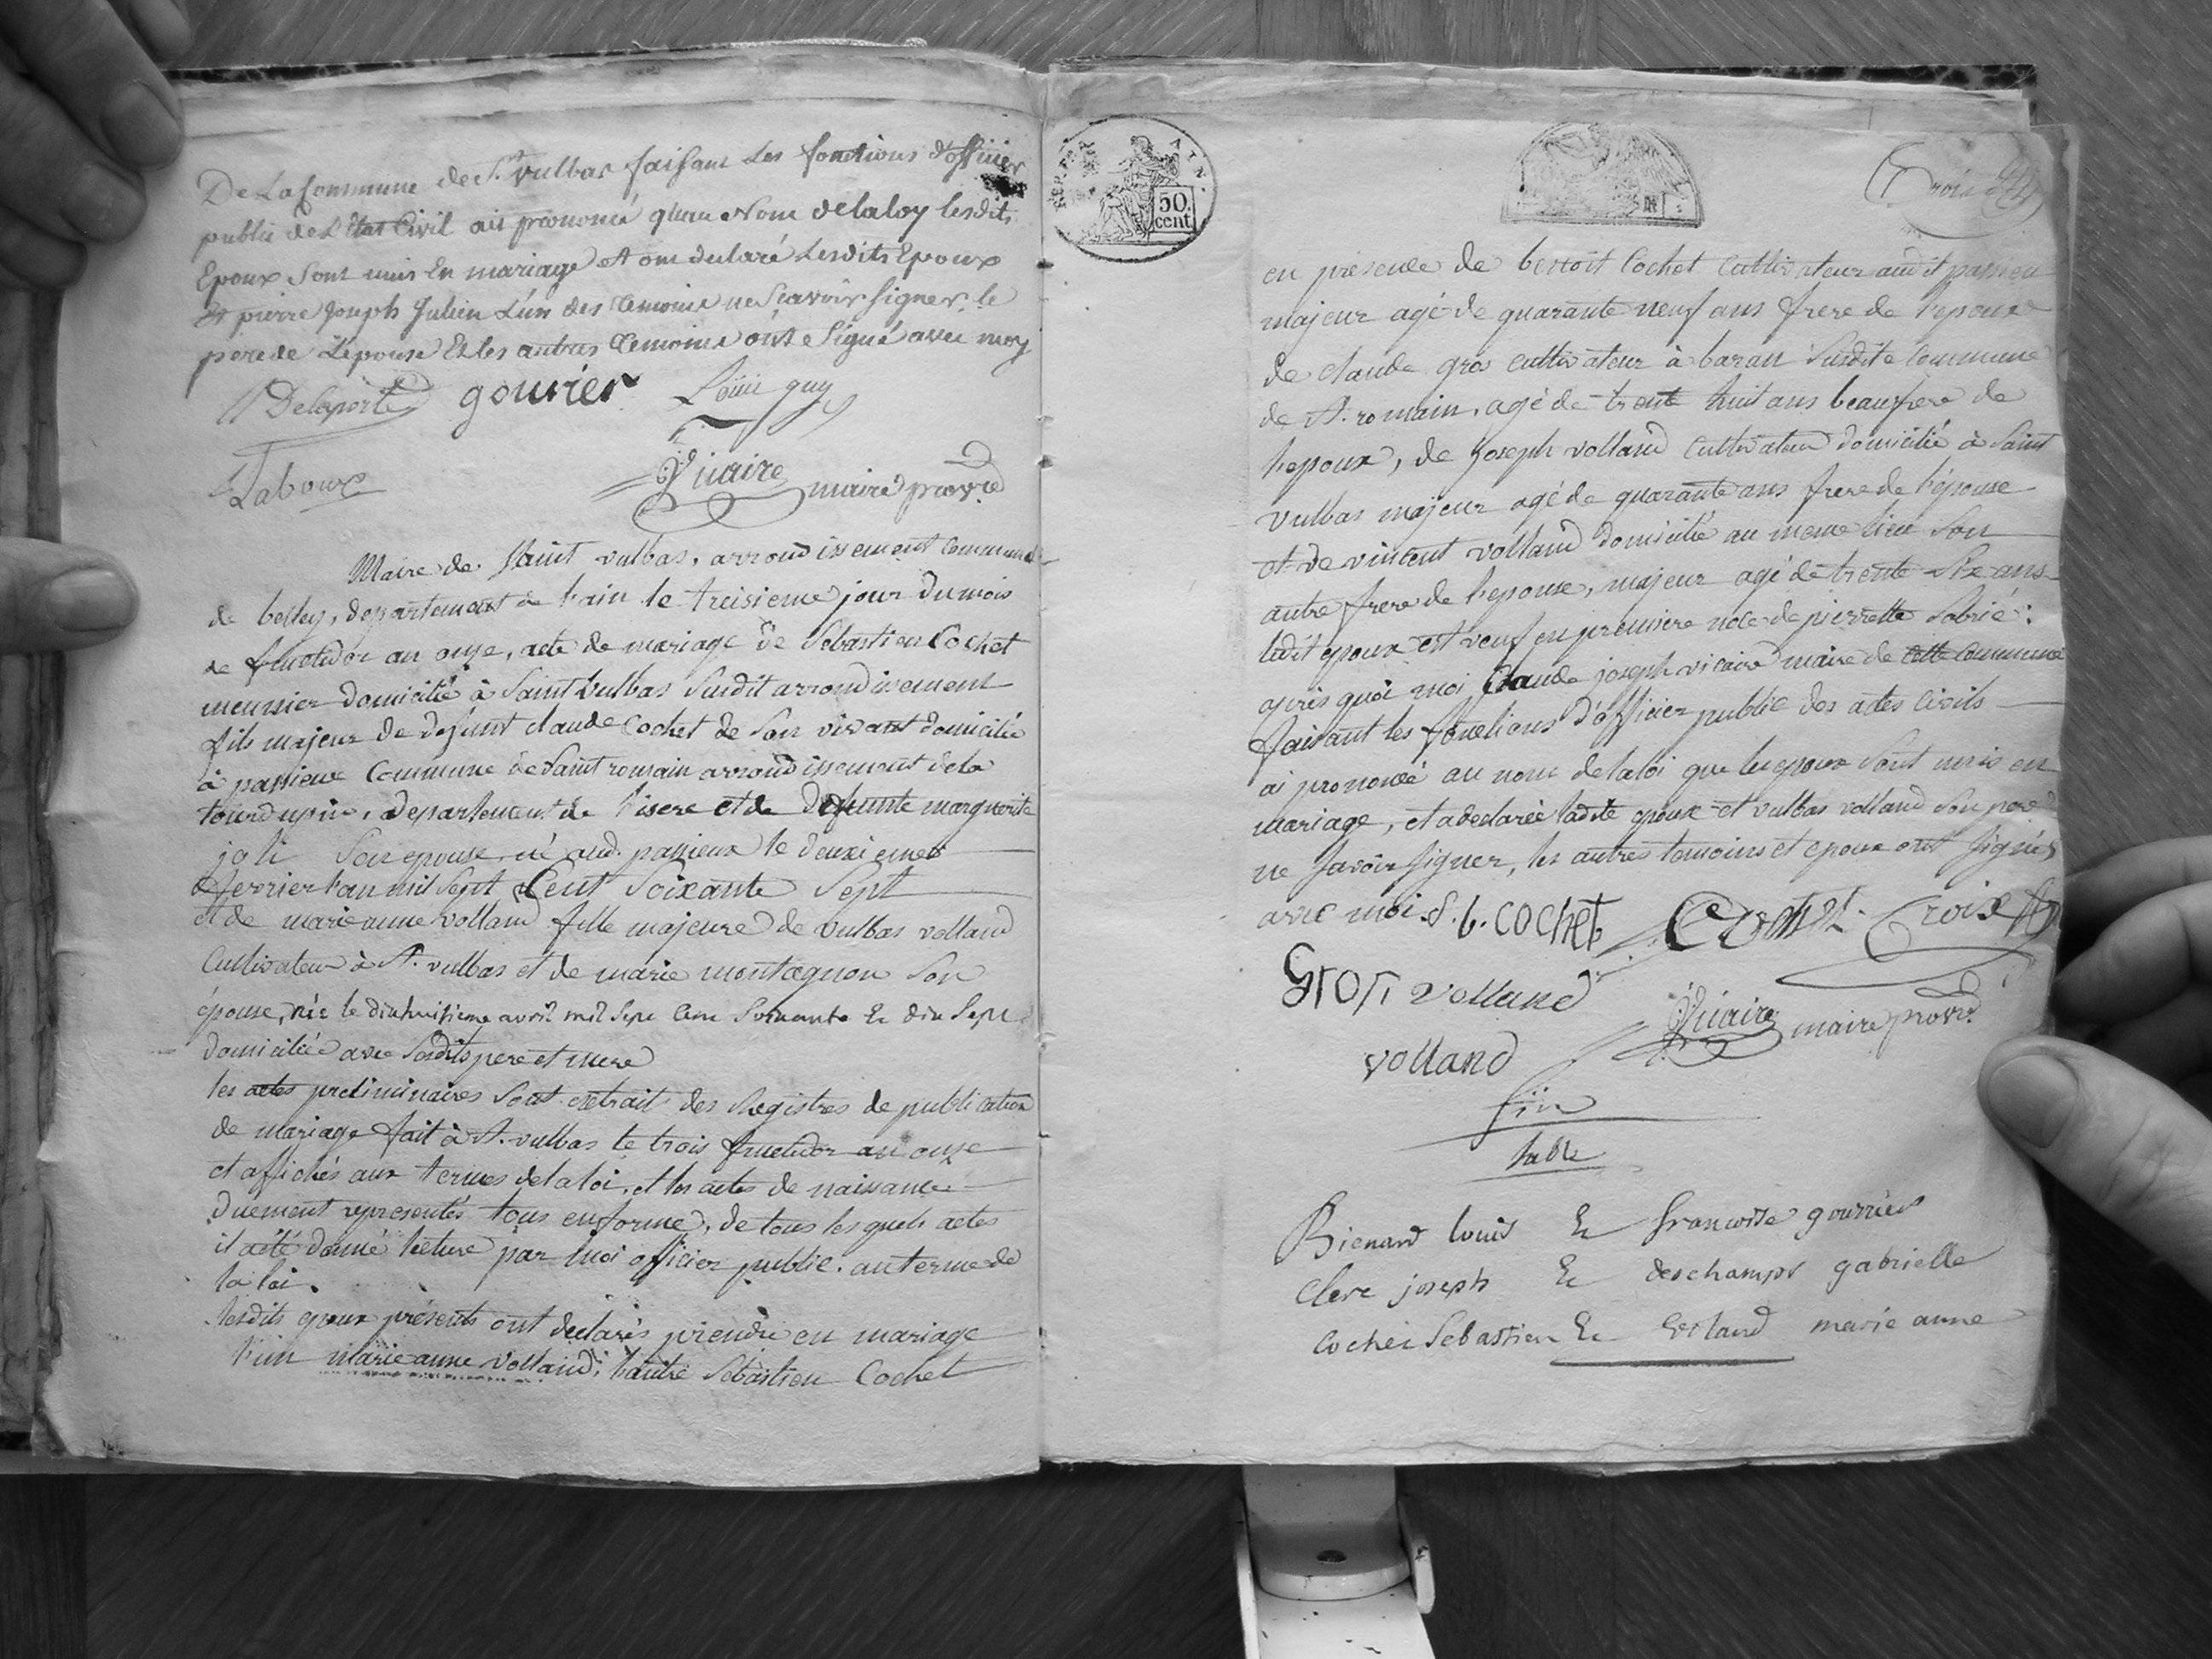 De La Commune de St vulbas faisant Les fonctions d'officier
public de L'Etat Civil ait prononcé quau Nom de la loy lesdits
Epoux Sont unis En mariage et ont declaré Lesdits Epoux
Et pierre Joseph Julien L'un des temoins ne Scavoir signer, le
pere de L'epouse Et les autres temoins onts Signé avec moy
Delaporte gourier Louis guy
Laboux Vicaire maire provre
Maire de Saint vulbas, arrondissement communal
de belley, departement de l'ain le treisieme jour du mois
de fructidor an onze, acte de mariage de Sebastien Cochet
meunier domicilié à Saint Vulbas Susdit arrondissement
fils majeur de defunt claude Cochet de Son vivant domicilié
à passieux Commune de Saint romain arrondissement de la
tourdupin, departement de l'isere et de defunte marguerite
joli Son epouse, né aud. passieux le deuxieme
fevrier l'an mil Sept Cent Soixante Sept
et de marie anne volland fille majeure de vulbas volland
Cultivateur à St. vulbas et de marie montagnon Son
épouse, née le dixhuitieme avril mil Sept Cent Soixante Et dix Sept
domiciliée avec Sesdits pere et mere
les actes preliminaires Sont extrait des Registres de publication
de mariage fait à St. vulbas le trois fructidor an onze
et affichés aux termes de la loi, et les actes de naissance
duement representés tous en forme, de tous les quels actes
il a été donné lecture par moi officier public. au terme de
la loi.
lesdits epoux présents ont declarés prendre en mariage
l'un Marie anne Volland, l'autre Sebastien Cochet
REP. FRA. 50. cent
Trois
en presence de benoit Cochet Cultivateur audit passieu
majeur agé de quarante neuf ans frere de l'epoux
de claude gros cultivateur à baran Susdite Commune
de St. romain, agé de trente huit ans beaufrere de
l'epoux, de joseph volland Cultivateur domicilié à Saint
Vulbas majeur agé de quarante ans frere de l'épouse
et de vincent volland domicilié au meme lieu Son
autre frere de l'epouse, majeur agé de trente Six ans
ledit epoux est veuf en premiere noce de pierrette
après quoi moi Claude joseph vicaire maire de cette Commune
faisant les fonctions d'officier public des actes Civils
ai prononcé au nom de la loi que les epoux Sont unis en
mariage, et a declarée ladite epouse et vulbas volland Son pere
ne Savoir signer, les autres temoins et epoux ont Signés
avec moi. S. b. cochet Cochet Croix
Gros volland
Vicaire maire provre
volland
fin
table
Bienard louis Et francoise gourrier
Clere joseph Et deschamps gabrielle
Cochet Sebastien Et Volland marie anne